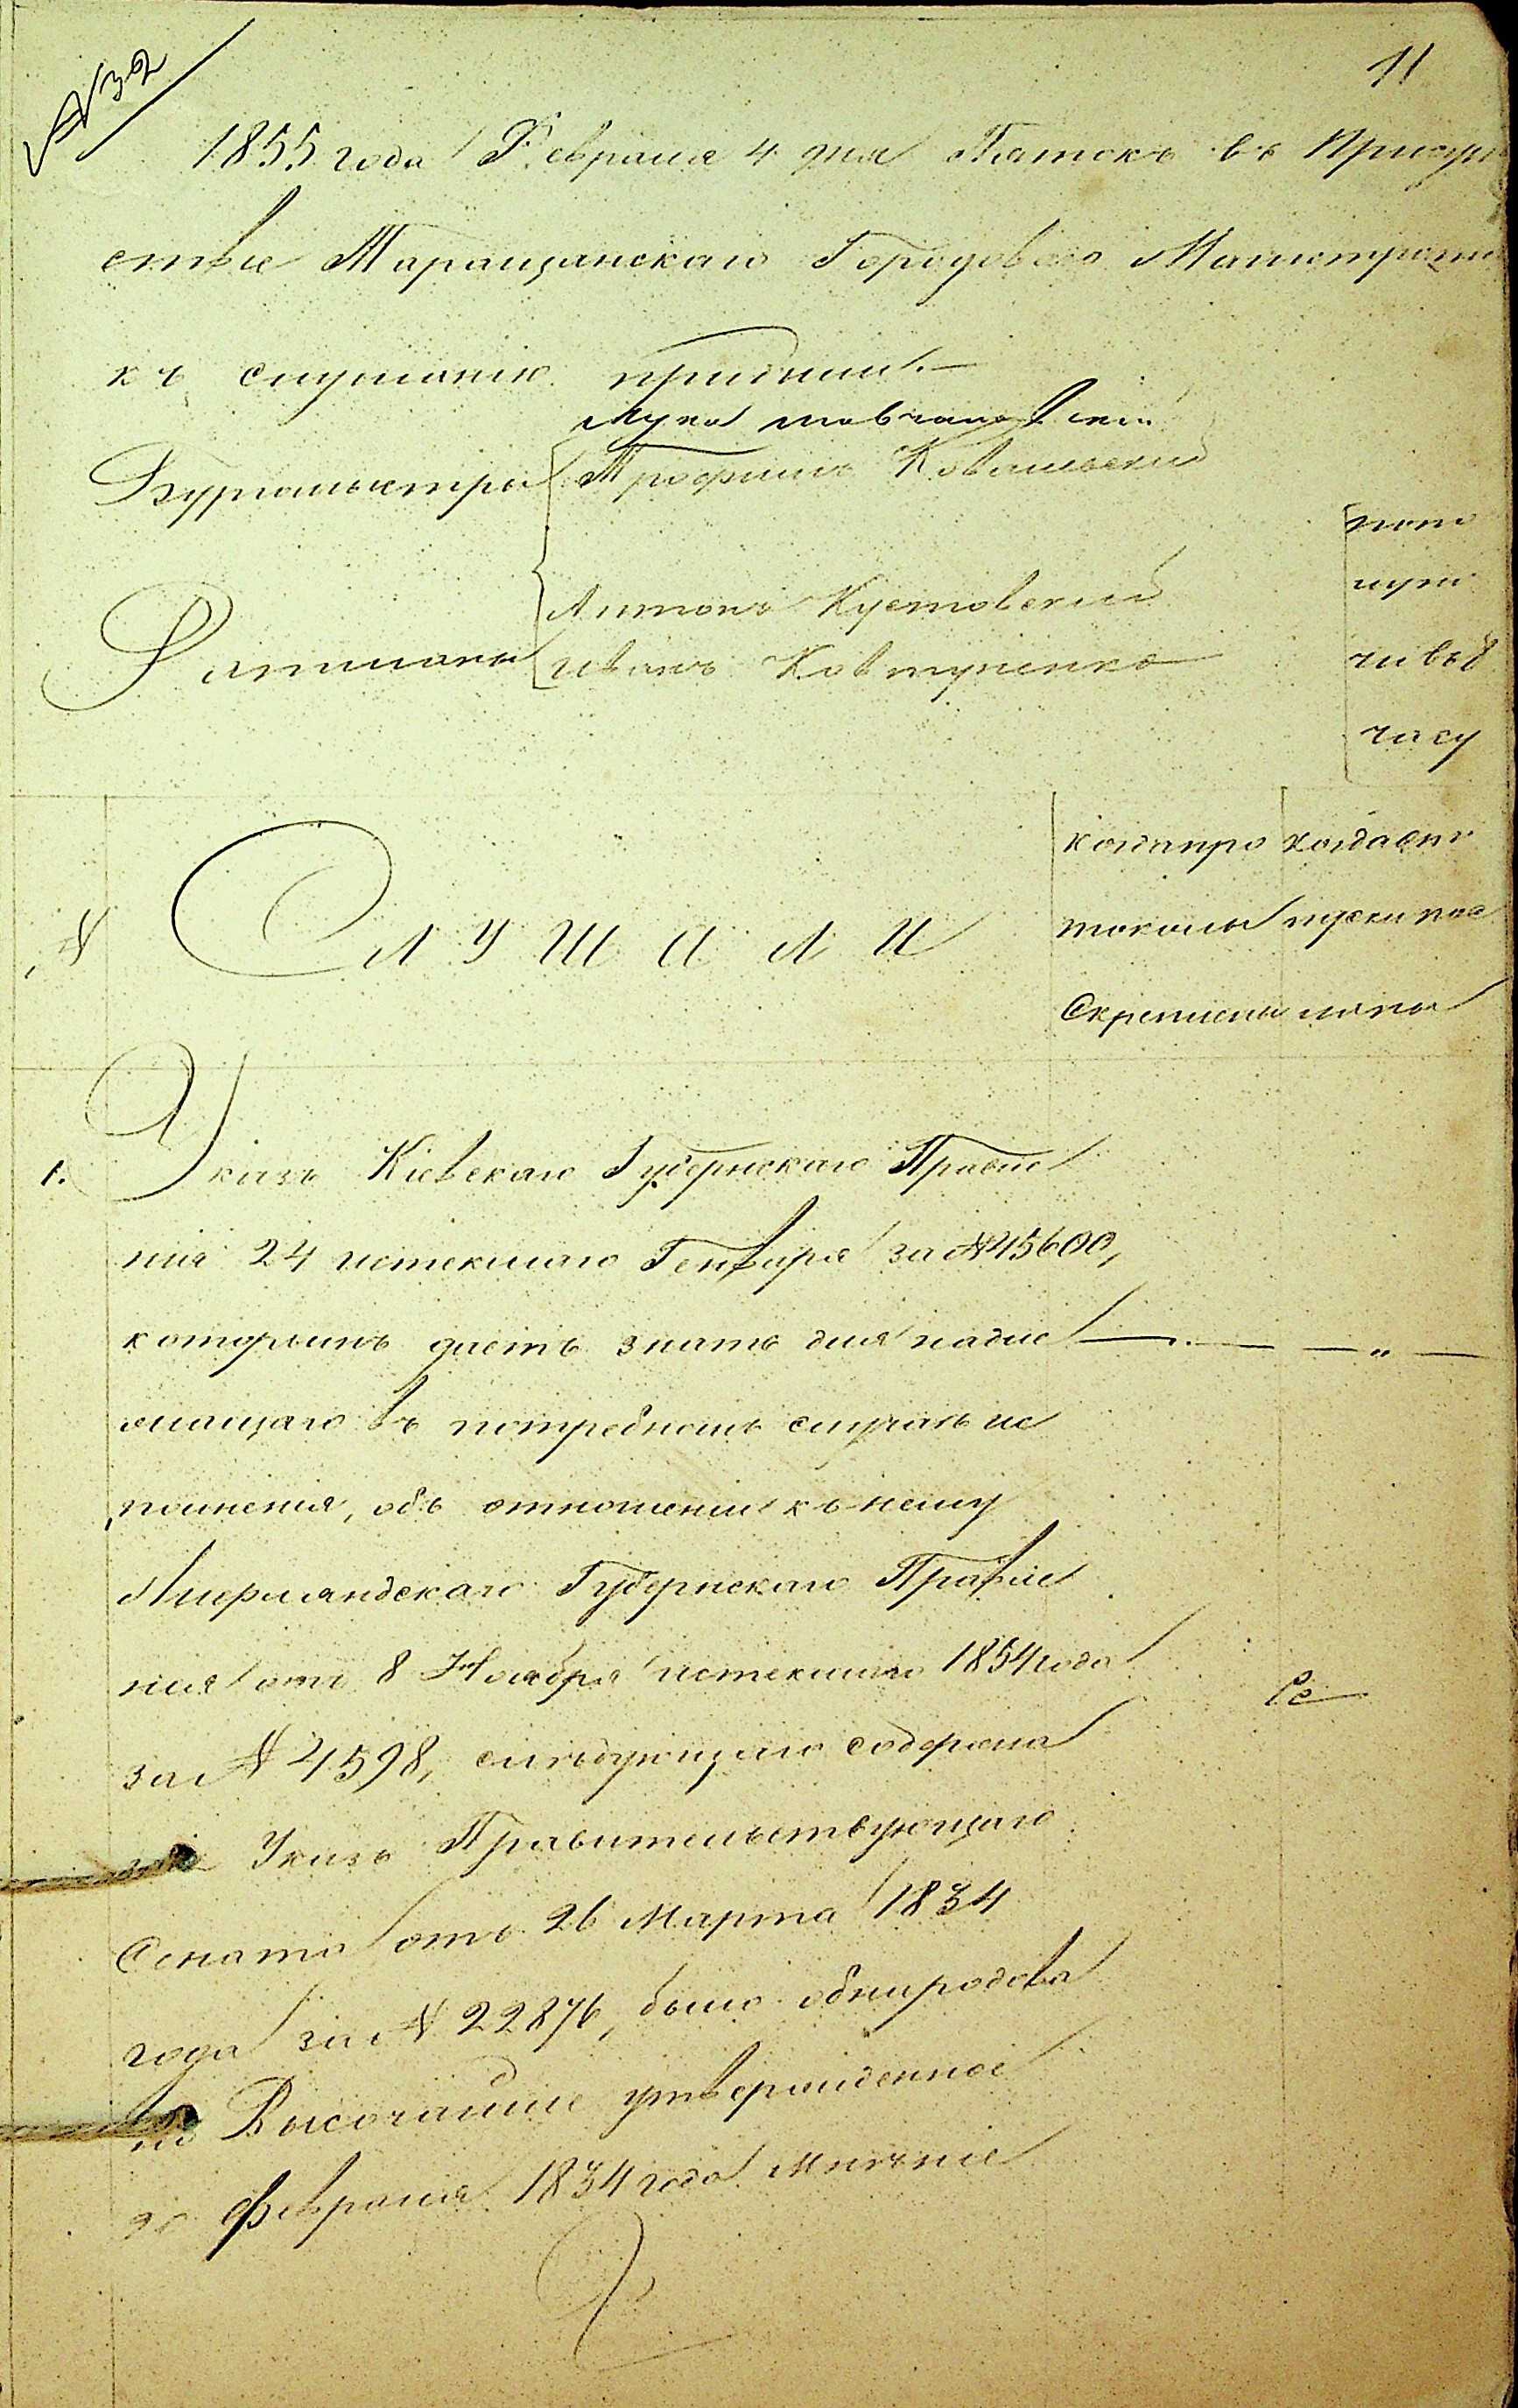 № 32
11
1855 года Февраля 4 дня Пятокъ въ Присут
ствие Таращанскаго Городоваго Магистрата
къ слушанію прибыли.
Лука
Бургомистры Трофимъ Ковальский
Антонъ Кустовский
Ратманы Иванъ Ковтуненко
по
полу
ни въ 8
часу
№ СЛУШАЛИ
когда про
токолы
Скреплены
когда
1. Указъ Кіевскаго Губернскаго Правле
нія 24 истекшаго Генваря за № 45600,
которымъ даетъ знать для надле
жащаго въ потребномъ случаѣ ис
полненія, объ отношении къ нему
Лифляндскаго Губернскаго Правле
ния отъ 8 Ноября истекшаго 1854 года
за № 4598, слѣдующаго содержа
ния Указъ Правительствующаго
Сената отъ 26 Марта 1834
года за № 22876, было обнародова
но Высочайше утвержденное
Февраля 1834 года Мнѣние